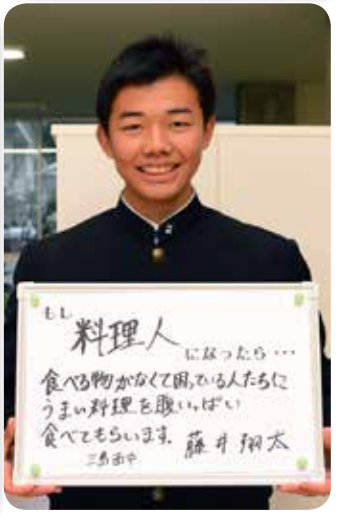 もし
料理人
になったら…
食べる物がなくて困っている人たちに
うまい料理を腹いっぱい
食べてもらいます。
三島西中 藤井翔太